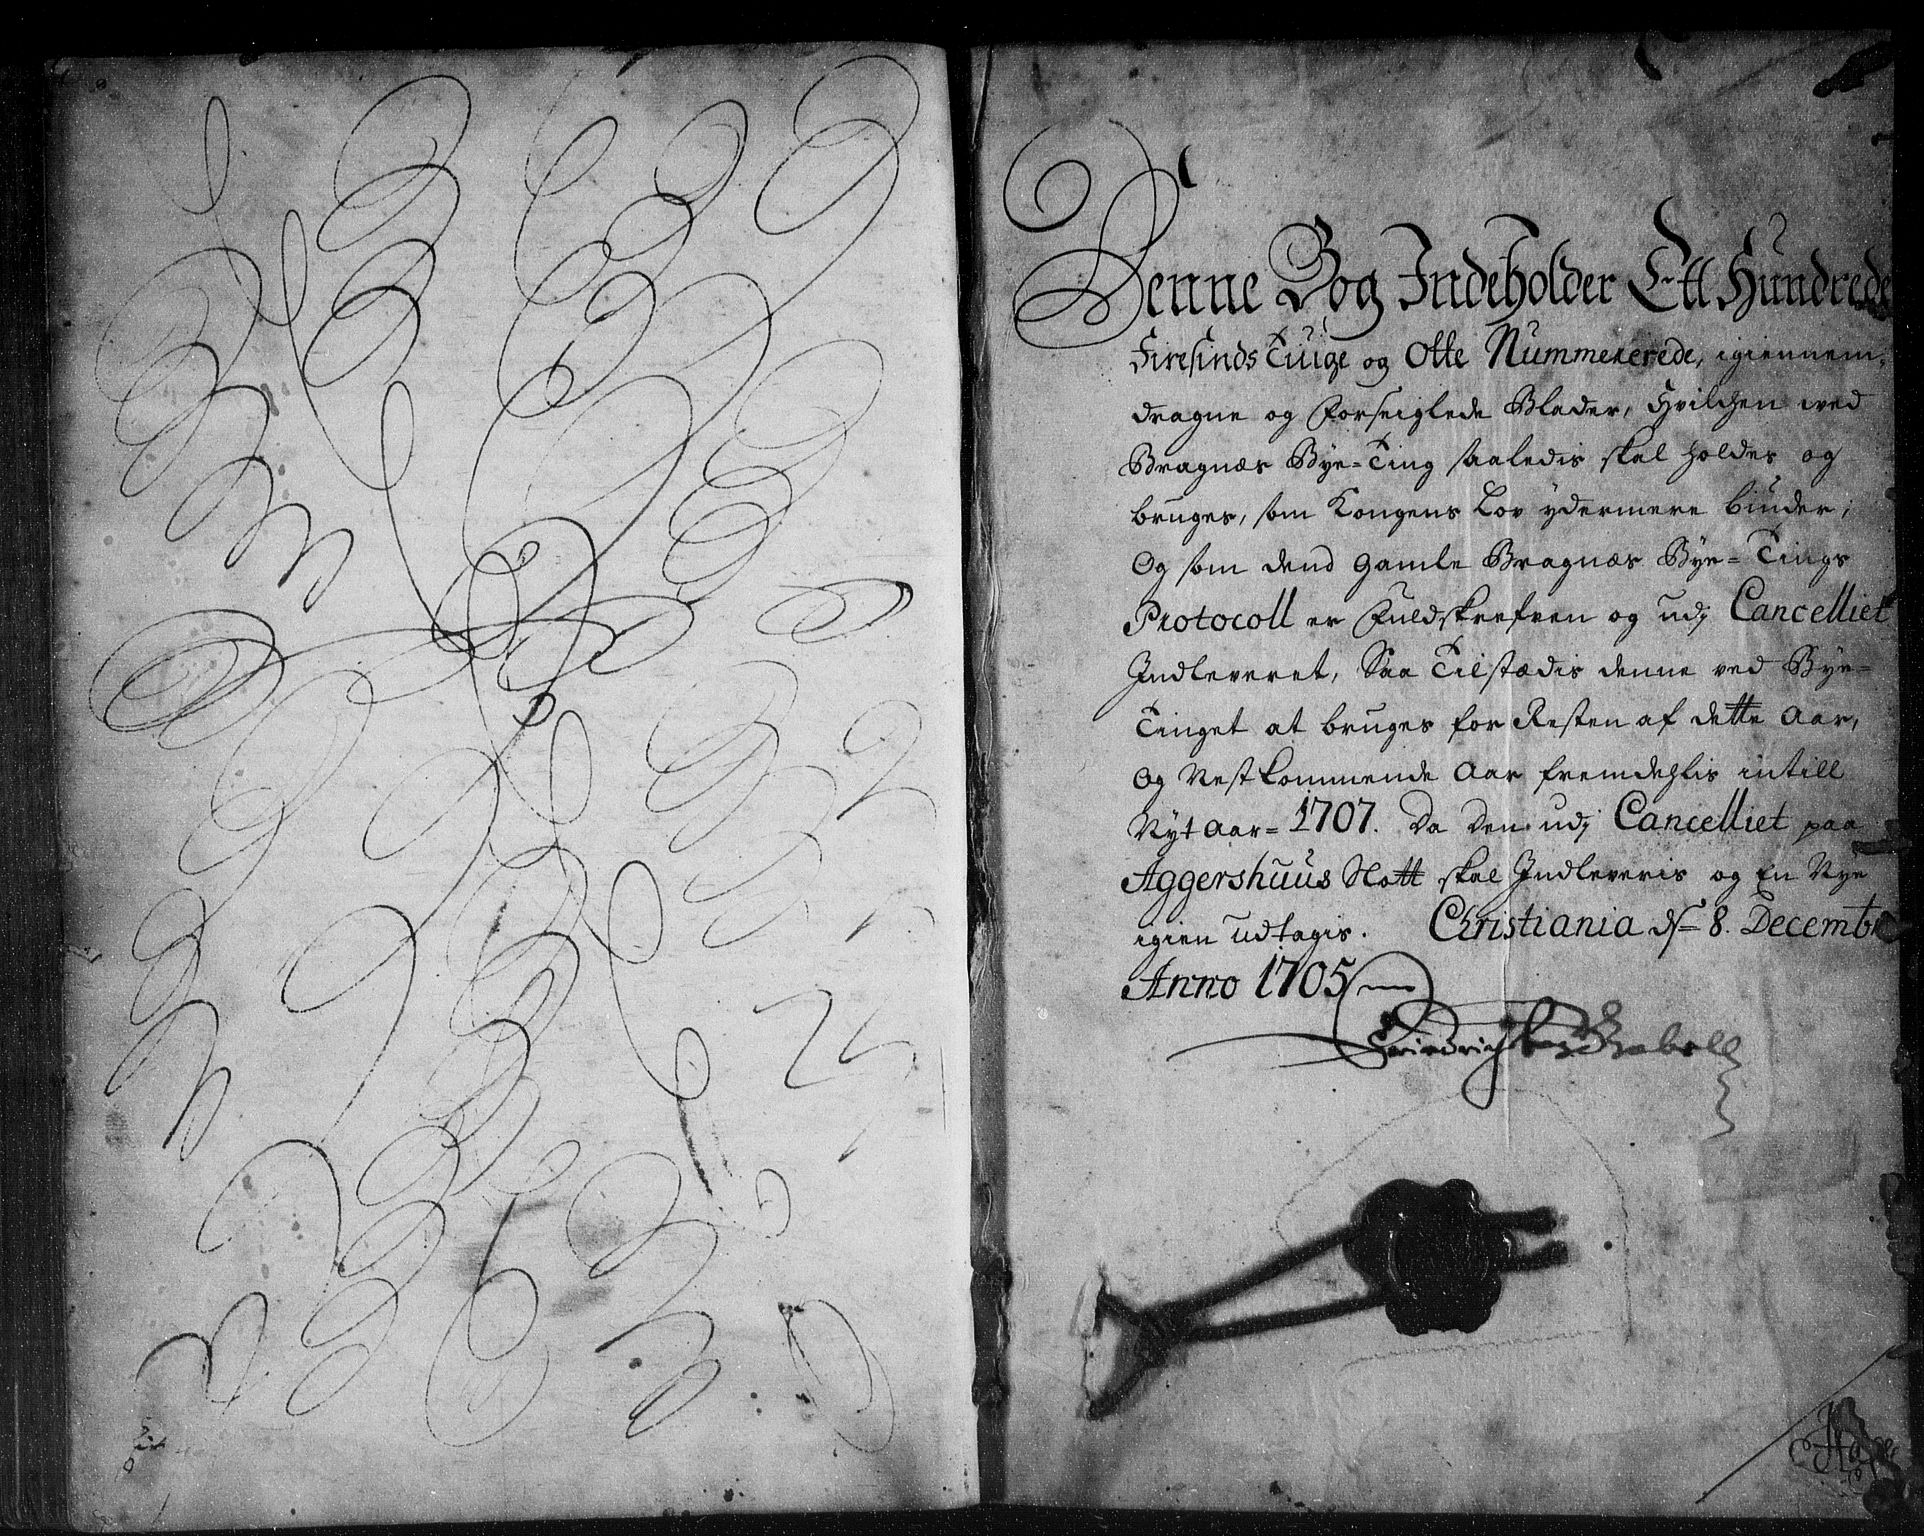 Denne Bog Indeholder Ett Hundrede
Firesinds Tiuge og Otte Nummererede, igiennem,
dragne og Forseiglede Blader, Hvilchen wed
Bragnæs Bye=Ting saaledis skal holdes og
bruges, som Kongens Lov ydermere binder;
Og som dend gamle Bragnæs Bye=Tings
Protocoll er Fuldskrefven og udj Cancelliet
Indleveret, Saa Tilstædis denne ved Bye=
Tinget at bruges for Resten af dette Aar,
Og Nestkommende Aar fremdehlis intill
Nyt Aar= 1707. Da den udj Cancelliet paa
Aggershuus Slott skal Indleveris og En Nye
igien udtagis. Christiania ds 8. Decembr
Anno 1705
Friedrich